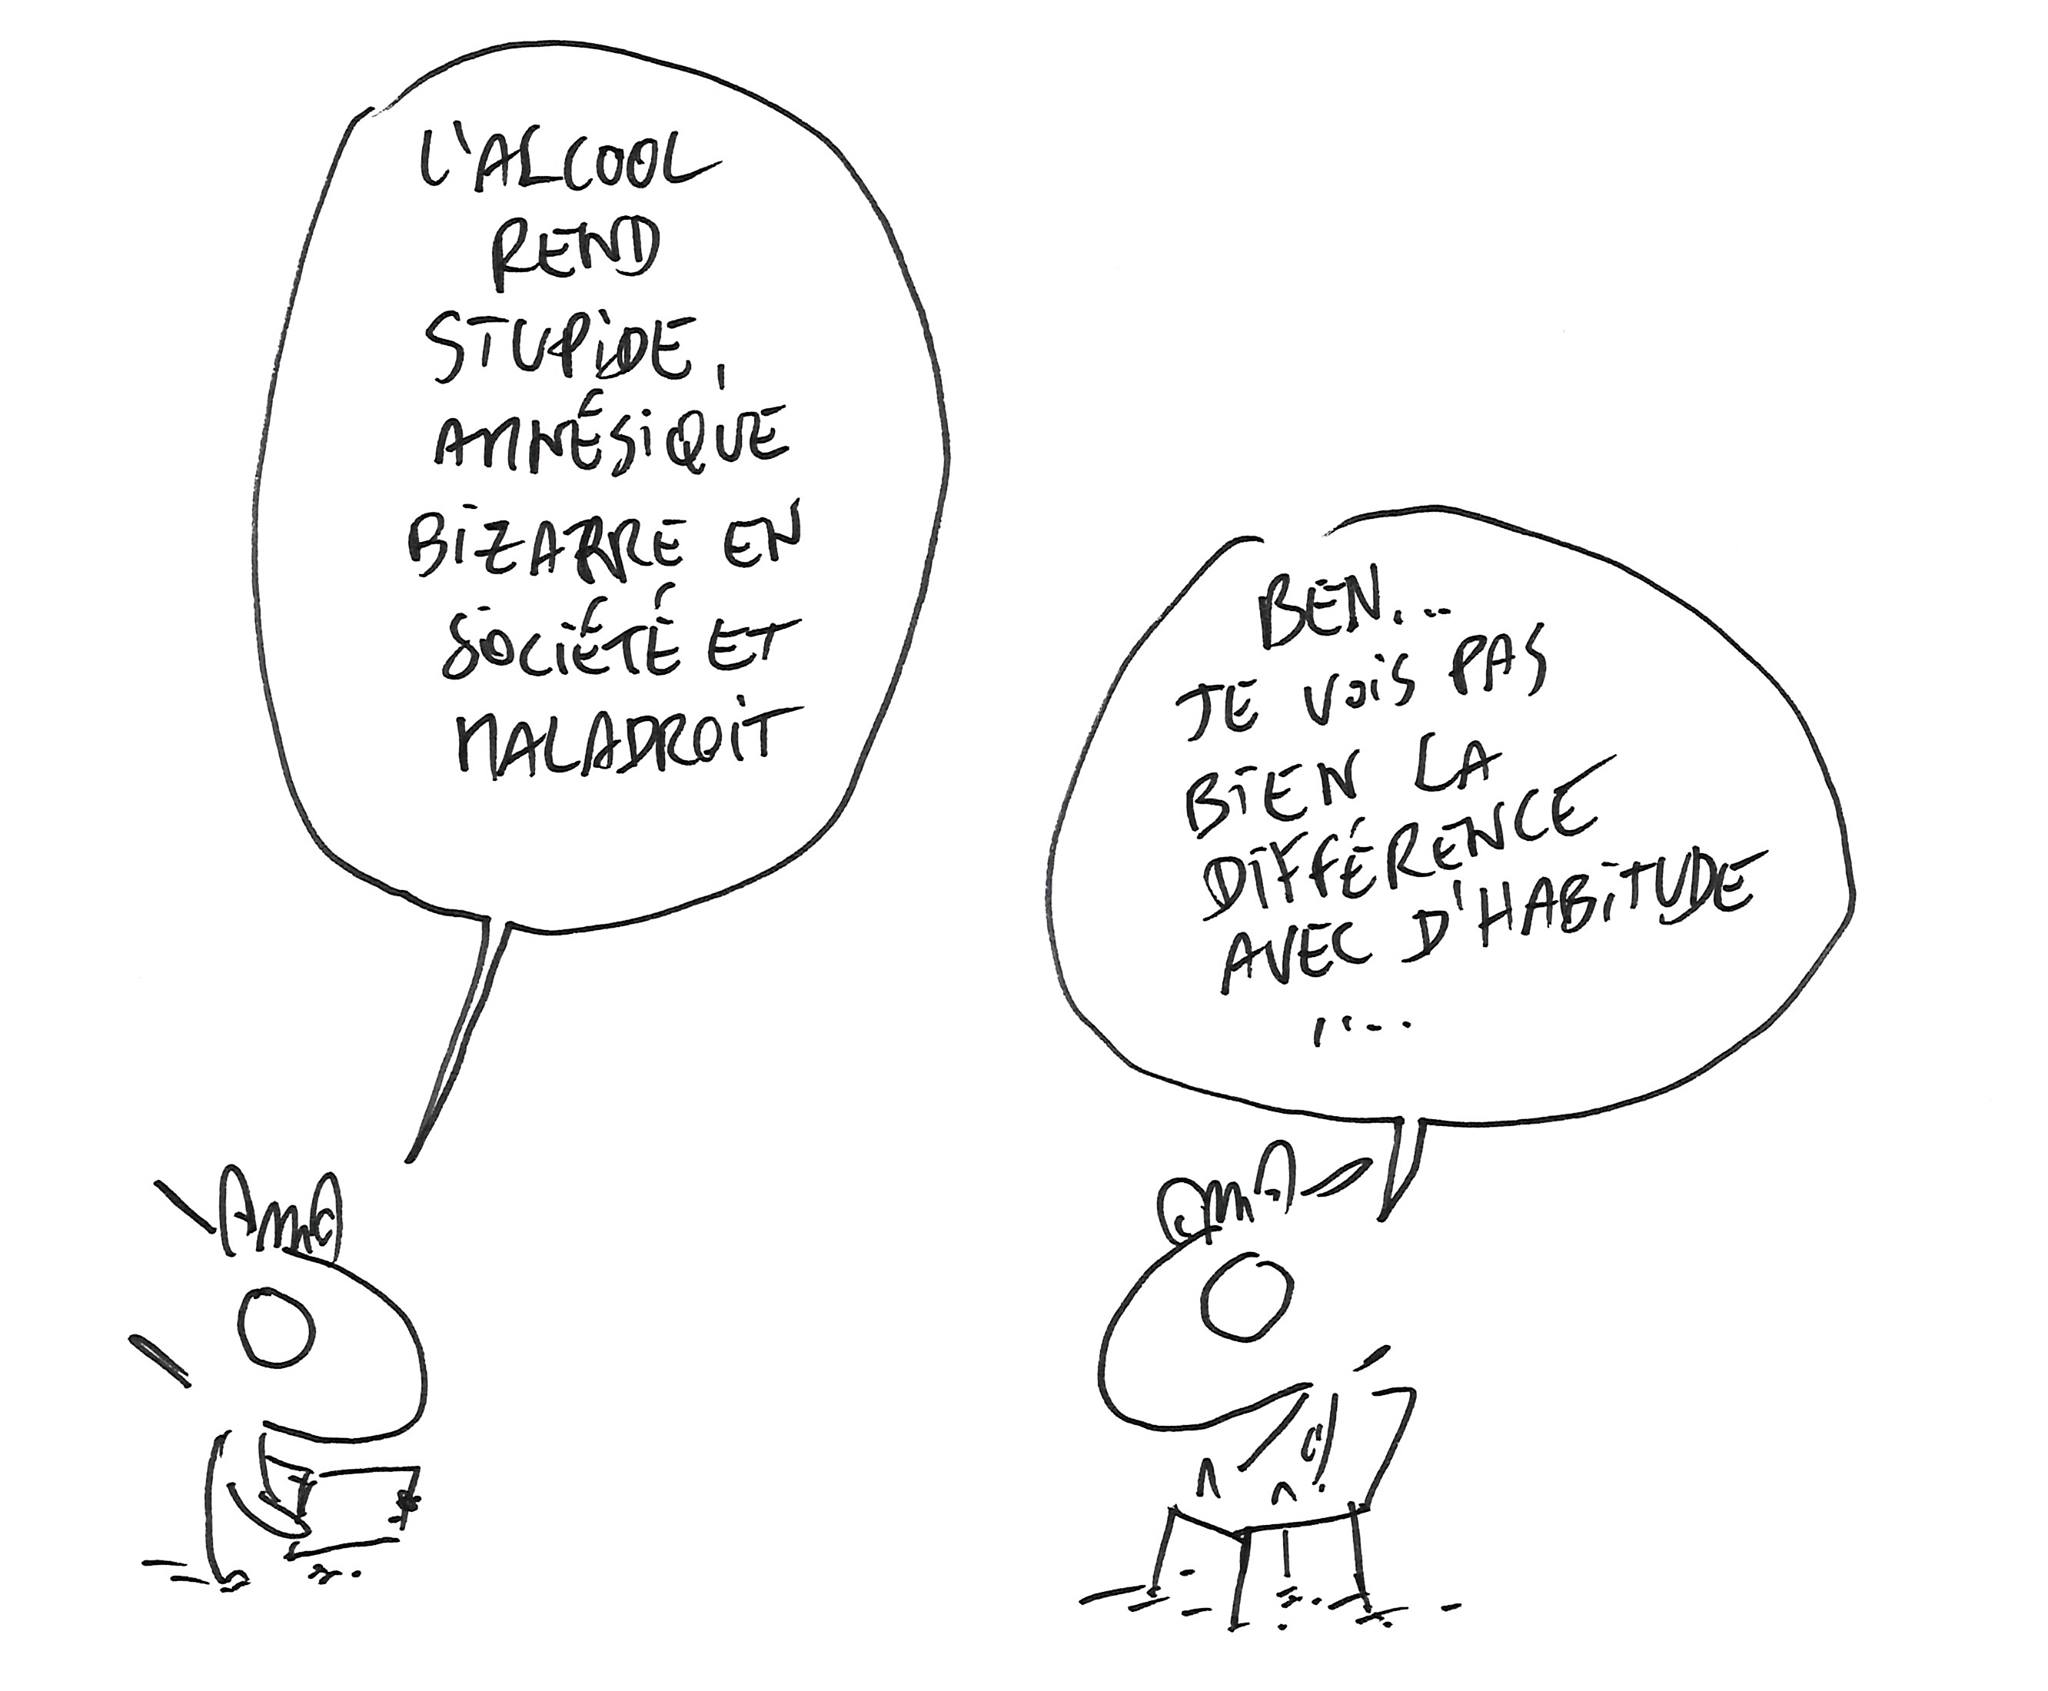 L'ALCOOL
REND
STUPIDE,
AMNÉSIQUE
BIZARRE EN
SOCIÉTÉ ET
MALADROIT
BEN...
JE VOIS PAS
BIEN LA
DIFFÉRENCE
AVEC D'HABITUDE
....